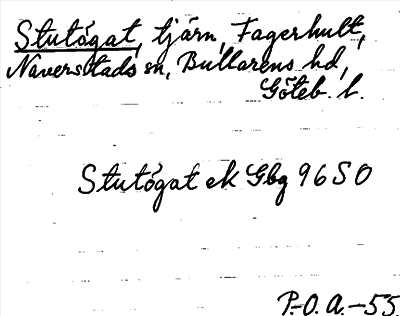 Stutögat, tjärn, Fagerhult,
Naverstads sn, Bullarens hd,
Göteb. l.
Stutögat ek Gbg 96 SO
P.-O. A. -55.